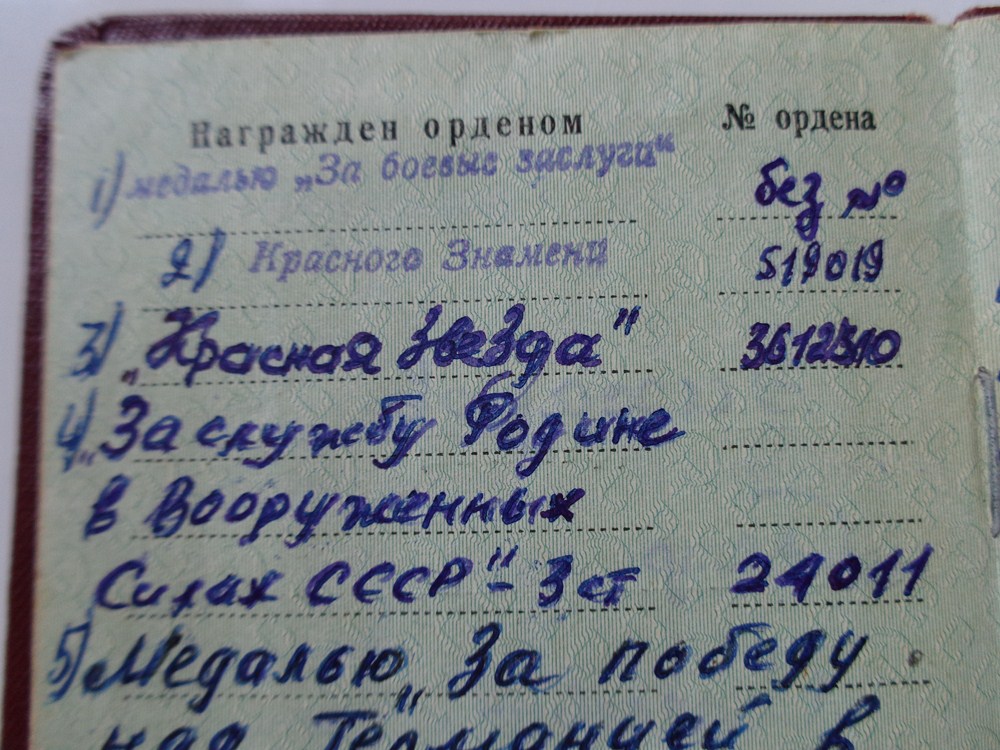 Награжден орденом № ордена
1) медалью „За боевые заслуги“ без №
2) Красного Знамени 519019
3) „Красная Звезда" 3612510
4) „За службу Родине
в Вооруженных
Силах СССР" - 3 ст 24011
5) Медалью „За победу
над Германией в